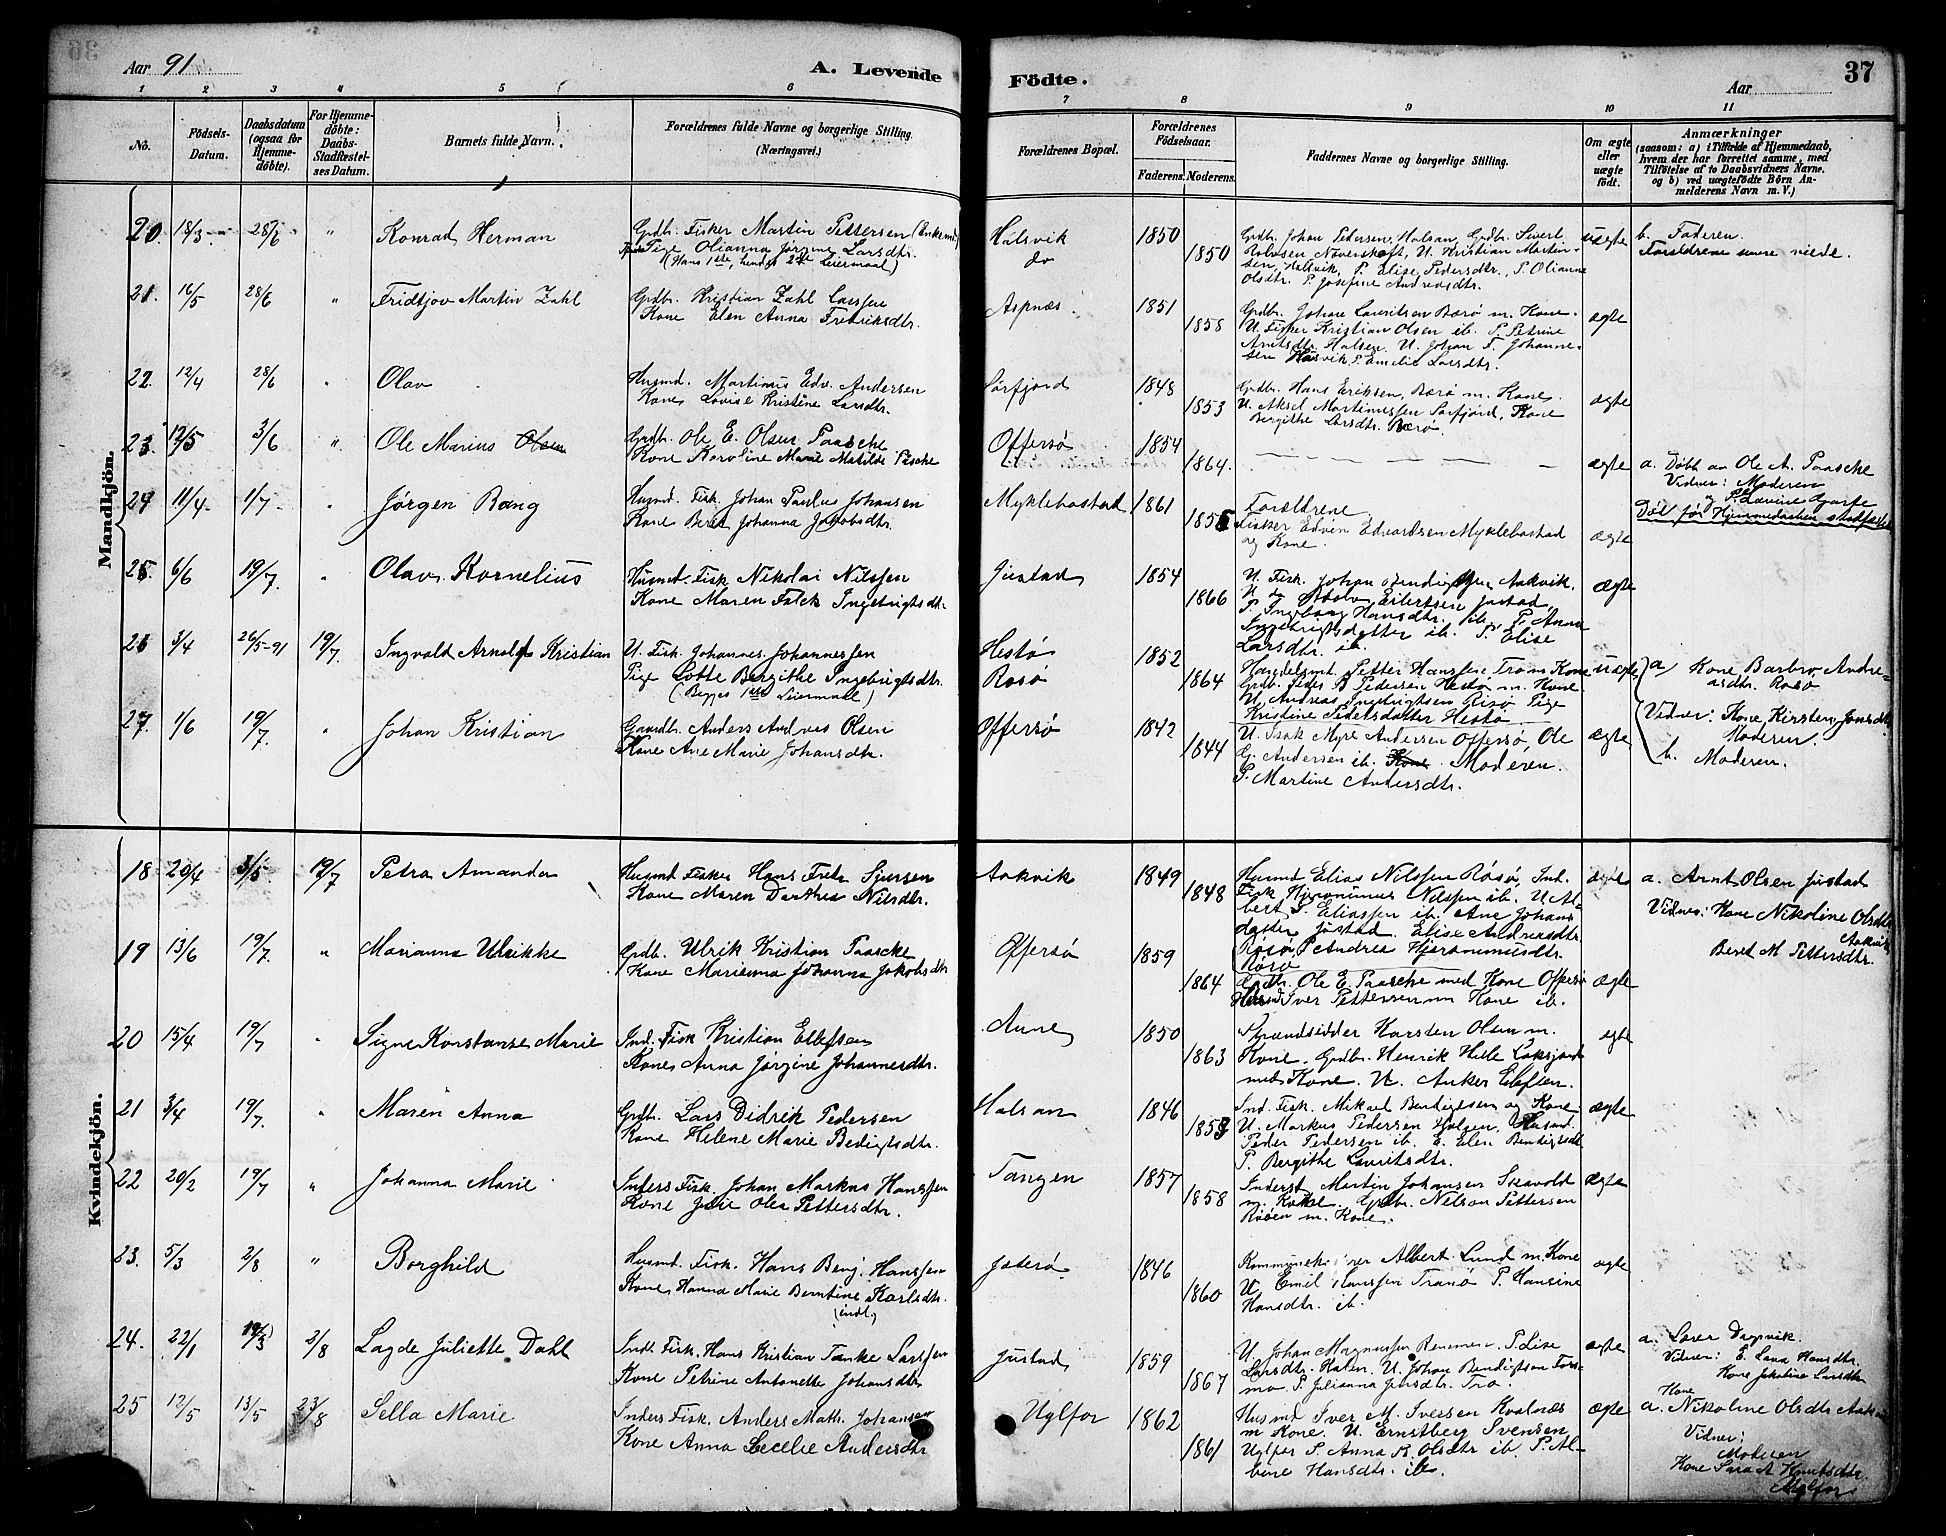 Aar 91.
A. Levende
Födte.
Aar
37
1 2 3 4 5 6 7 8 9 10 11
No.
Födsels-Datum.
Daabsdatum (ogsaa for Hjemmedöbte).
For Hjemmedöbte: Daabs-Stadfæstelses Datum.
Barnets fulde Navn.
Forældrenes fulde Navne og borgerlige Stilling. (Næringsvei.)
Forældrenes Bopæl.
Forældrenes Födselsaar.
Faderens. Moderens.
Faddernes Navne og borgerlige Stilling.
Om ægte eller uægte födt.
Anmærkninger
(saasom: a) i Tilfælde af Hjemmedaab, hvem der har forrettet samme, med Tilföielse af to Daabsvidners Navne, og b) ved uægtefödte Börn Anmelderens Navn m. V.)
Mandkjön.
20. 18/3 28/6 " Konrad Herman
Grdb. Fisker Martin Pettersen
Pige Olianna Jørgine Larsdtr.
(Hans 1ste, hendes 2det Leiermaal)
Halsvik
do
1850
1850
Grdbr. Johan Pedersen, Halsan, Grdbr. Sivert
Kristian Martin-
sen, Halsvik, P. Elise Pedersdtr., P. Olianne
Olsdtr. P. Josefine Andreasdtr.
uægte
b. Faderen.
Forældrene senere viede.
21. 16/5 28/6 " Fridtjov Martin Zahl
Grdbr. Kristian Zahl Larssen
Kone Elen Anna Fredriksdtr.
Aspnæs.
1851
1858
Grdbr. Johan Lauritsen Barø m. Kone.
U. Fisker Kristian Olsen ib. P. Petrine
Arntsdtr. Halsen. U. Johan F. Johanne-
sen Halsvik P. Emelie Larsdtr.
ægte
22. 12/4 28/6 " Olav
Husmd. Martinus Edv. Andersen
Kone Lovise Kristine Larsdtr.
Sørfjord
1848
1853
Grdbr. Hans Eriksen, Barø m. Kone.
U. Aksel Martinussen Sørfjord, Kone
Bergithe Larsdtr. Barø.
ægte
23. 12/5 3/6 " Ole Marius Olsen
Grdb. Ole E. Olsen Paasche
Kone Karoline Marie Matilde Paasche
Offersø
1854
1864.
ægte
a. Døbt av Ole A. Paasche
Vidner: Moderen
og Lavine
Død før Hjemmedaaben stadfæstet
24 11/4 1/7 " Jørgen Bang
Husmd. Fisk. Johan Paulus Johansen
Kone Beret Johanna Jakobsdtr.
Myklebostad
1861
1855
Forældrene
Fisker Edvin Edvardsen Myklebostad
og Kone.
ægte
25. 6/6 19/7. " Olav Kornelius
Husmd. Fisk Nikolai Nilssen
Kone Maren Falck Ingebrigtsdtr.
Justad
1854
1866
U. Fisk. Johan Aakvik.
U. do Adolv Eilertsen Justad,
P. Ingeborg Hansdtr. ib. P. Anna
Ingebrigtsdatter ib. P. Elise
Larsdtr. ib.
ægte
26 3/4 26/5-91 19/7. Ingvald Arnold Kristian
U. Fisk. Johannes Johannessen
Pige Lotte Bergithe Ingebrigtsdtr.
(Begges 1ste Leiermaal)
Hestø
Rosø
1852
1864
Handelsmd Petter Hanssen, Tranø Kone
Grdb. Peder B Pedersen Hestø m. Kone
U. Andreas Ingebrigtsen Risø Pige
Kristine Pedersdatter Hestø.
uægte
a Kone Barbro Andre-
asdtr. Rosø
Vidner: Kone Kirsten Jonsdtr.
Moderen.
b. Moderen.
27. 1/6 19/7. " Johan Kristian
Gaardb. Anders Andreas Olsen
Kone Ane Marie Johansdtr.
Offersø
1842
1844
U. Isak Myre Andersen Offersø, Ole
G. Andersen ib. Kone Moderen.
P. Martine Andersdtr.
ægte
Kvindekjön.
18 20/4 3/5 19/7 Petra Amanda
Husmd Fisker Hans Fredr. Sjursen
Kone Maren Dorthea Nilsdtr.
Aakvik
1849
1848
Husmd Elias Nilssen Røsø, Ind.
Fisk Hjeronimus Nilssen ib. U. Al-
bert S. Eliassen ib. Ane Johans
datter Justad. Elise Andreasdtr.
Rosø P. Andrea Hjeronimusdtr.
Rosø
ægte
a. Arnt Olsen Justad
Vidner: Kone Nikoline Olsdtr
Aakvik
Beret M Pettersdtr.
19 13/6 19/7. " Marianna Ulrikke
Grdb. Ulrik Kristian Paasche
Kone Marianna Johanna Jakobsdtr
Offersø
1859
1864
Grdbr. Ole E. Paasche med Kone Offersø
Husmd Iver Pettersen m Kone ib.
ægte
20 15/4 19/7 " Signe Konstanse Marie
Ind. Fisk Kristian Ellefsen
Kone Anna Jørgine Johannesdtr.
Aune
1850
1863
Strandsidder Karsten Olsen m.
Kone. Grdbr. Henrik Hule
med Kone. U. Anker Elefsen.
ægte
21 3/4 19/7. " Maren Anna
Grdb. Lars Didrik Pedersen
Kone Helene Marie Bedigtsdtr.
Halsan
1846
1853
Ind. Fisk. Mikael Bendigtsen og Kone
U. Markus Pedersen Halsen, Husmd.
Peder Pedersen ib. E. Elen Bendigtsdt
P. Bergithe Lauritsdtr.
ægte
22 20/2 19/7 " Johanna Marie
Inders Fisk. Johan Markus Hanssen
Kone Julie Olea Pettersdtr.
Tangen
1857
1858
Inderst Martin Johansen Skavold
m. Kone. Grdbr. Nelson Pettersen
Røsen m. Kone.
ægte
23. 5/3 2/8 " Borghild
Husmd. Fisk. Hans Benj. Hanssen
Kone Hanna Marie Berntine Karlsdtr.
(indl)
Jøterø.
1846
1860
Albert Lund m. Kone
U. Emil Hanssen Tranø P. Hansine
Hansdtr. ib.
ægte
24. 22/1 19/3 2/8 Lagde Juliette Dahl
Ind. Fisk. Hans Kristian Tanke Larssen
Kone Petrine Antonette Johansdtr
Justad
1859
1867
U. Johan Magnussen P. Lise
Larsdtr. U. Johan Bendigtsen
P. Julianna Jensdtr.
ægte
a. Lærer Dagsvik.
Vidner: E. Lava Hansdtr.
Kone Jakobine Larsdtr
25 12/5 13/5 23/8 Sella Marie
Inders Fisk. Anders Math. Johansen
Kone Anna Secelie Andersdtr
Uglfor
1862
1861
Husmd Iver M. Iversen Kvalnæs
m Kone. U. Ernstberg Svensen
Uglfor P. Anna R. Olsdtr ib. P. Al-
bine Hansdtr. ib.
ægte
Kone
a. Nikoline Olsdtr
Vidner:
Moderen
Kone Sara A Knutsdtr.
Uglfor